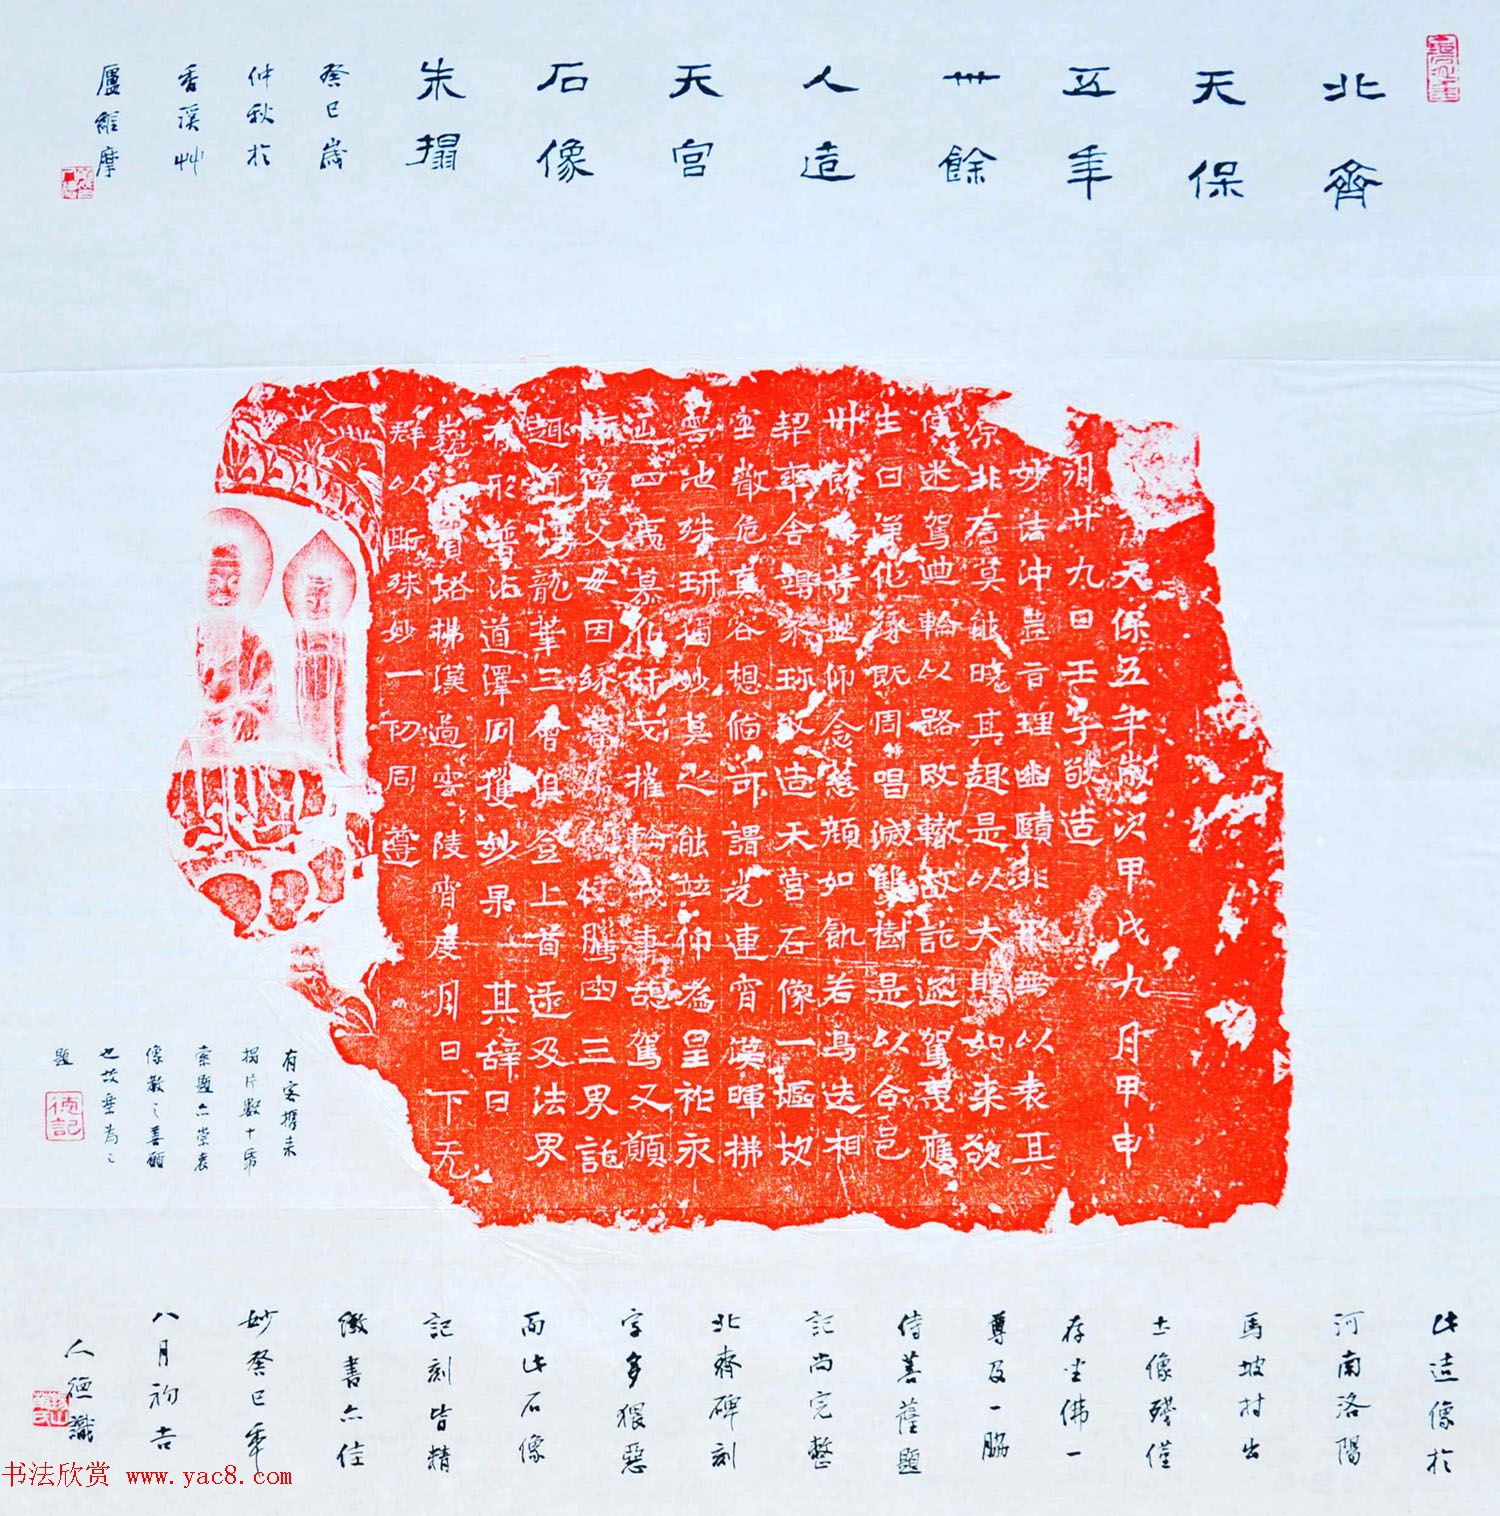 北齊
天保
五年
卅餘
人造
天宮
石像
朱搨
癸巳歲
仲秋於
香溪艸
廬維摩
天保五年歲次甲戌九月甲申
朔廿九日壬子敬造
妙法沖豈音理幽賾非形無以表其
原非言莫能曉其趣是以大聖如來欲
使迷駕迴輪以路改轍故 駕 應
生曰淨化緣既周唱滅雙樹是以合邑
卅餘人等並仰念慈顏如飢若渴迭相
契率舍竭家珎敬造天宮石像一堰
嚴危真谷想 可謂光連宵漢暉拂
雲池殊研 妙莫之能並仰為皇祚永
延四夷慕化干戈摧 我車息駕又願
師僧父母因緣眷 騰出三界託
趣道場龍華三會俱登上首逮及法界
有形普沾道澤同獲妙果其辞曰
巍巍寶塔拂漢過雲陵宵度月日下无
群以斯殊妙一切同尊
有客攜來
搨片數十番
索題亦崇衷
像教之善願
也故重為之
題
德記
此造像於
河南洛陽
馬坡村出
土像殘僅
存坐佛一
尊及一脇
侍菩薩題
記尚完整
北齊碑刻
字多猥惡
而此石像
記刻皆精
緻書亦佳
妙癸巳年
八月初吉
人德識
书法欣赏 www.yac8.com